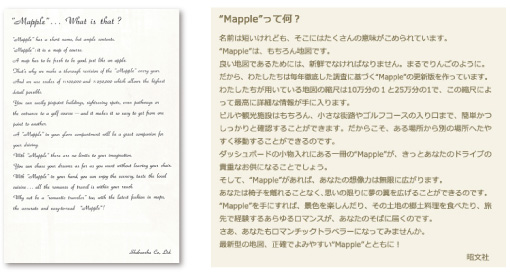 "Mapple"... What is that?
"Mapple" has a short name, but ample contents.
"Mapple": it is a map of course.
A map has to be fresh to be good, just like an apple.
That's why we make a thorough revision of the "Mapple" every year.
And we use scales of 1:100,000 and 1:250,000 which allows the highest
detail possible.
You can easily pinpoint buildings, sightseeing spots, even pathways or
the entrance to a golf course — and it makes it so easy to get from one
point to another.
A "Mapple" in your glove compartment will be a great companion for
your driving.
With "Mapple" there are no limits to your imagination.
You can chase your dreams as far as you want without leaving your chair.
With "Mapple" in your hand, you can enjoy the scenery, taste the local
cuisine ... all the romance of travel is within your reach.
Why not be a "romantic traveler" too, with the latest fashion in maps,
the accurate and easy-to-read "Mapple"!
Shobunsha Co., Ltd.
“Mapple”って何？
名前は短いけれども、そこにはたくさんの意味がこめられています。
“Mapple”は、もちろん地図です。
良い地図であるためには、新鮮でなければなりません。まるでりんごのように。
だから、わたしたちは毎年徹底した調査に基づく“Mapple”の更新版を作っています。
わたしたちが用いている地図の縮尺は10万分の1と25万分の1で、この縮尺によ
って最高に詳細な情報が手に入ります。
ビルや観光施設はもちろん、小さな街路やゴルフコースの入り口まで、簡単かつ
しっかりと確認することができます。だからこそ、ある場所から別の場所へたや
すく移動することができるのです。
ダッシュボードの小物入れにある一冊の“Mapple”が、きっとあなたのドライブの
貴重なお供になることでしょう。
そして、“Mapple”があれば、あなたの想像力は無限に広がります。
あなたは椅子を離れることなく、思いの限りに夢の翼を広げることができるのです。
“Mapple”を手にすれば、景色を楽しんだり、その土地の郷土料理を食べたり、旅
先で経験するあらゆるロマンスが、あなたのそばに届くのです。
さあ、あなたもロマンチックトラベラーになってみませんか。
最新型の地図、正確でよみやすい“Mapple”とともに！
昭文社